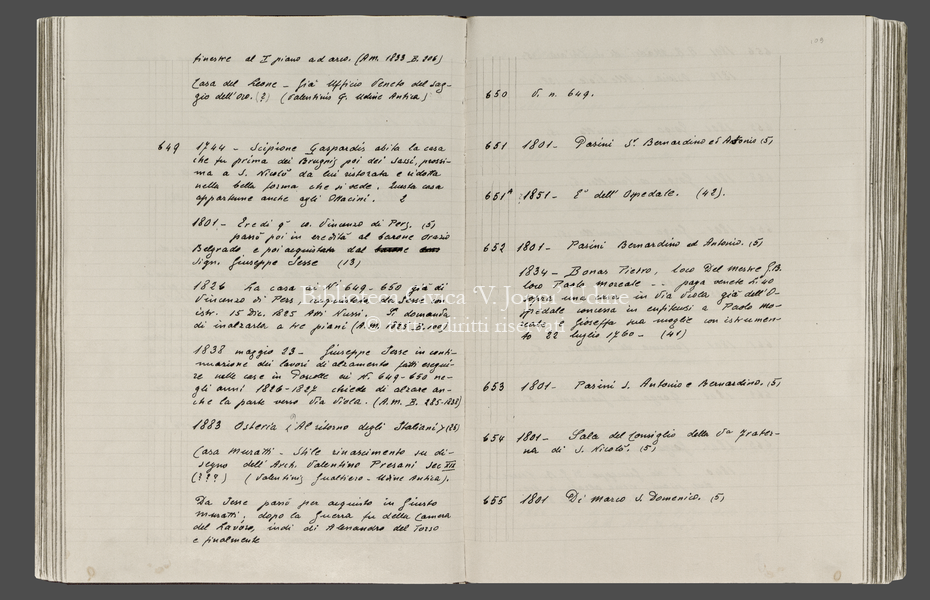 finestre al I piano ad arco. (A.M. 1833 B. 206)
Casa del Leone - Già Ufficio Veneto del sag-
gio dell'oro. (?) (Valentinis G. Udine Antica)
649 1744 - Scipione Gaspardis abita la casa
che fu prima dei Brugnis poi dei Sassi, prossi-
ma a S. Nicolò da lui ristorata e ridotta
nella bella forma che si vede. Questa casa
appartenne anche agli Ottacini. 2
1801 - Eredi q.m co. Vincenzo di Pers. (5)
passò poi in eredità al barone Orazio
Belgrado e poi acquistata dal
sign. Giuseppe Jesse (13)
1826 La casa ai N. 649-650 già di
Vincenzo di Pers,
istr. 15 Dic. 1825 Atti Nussi. domanda
di inalzarla a tre piani (A.M.
1838 maggio 23 - Giuseppe Jesse in conti-
nuazione dei lavori di alzamento fatti esegui-
re nelle case in Poscolle ai N. 649-650 ne-
gli anni 1826-1827 chiede di alzare an-
che la parte verso Via Viola. (A.M. B. 285-1838)
1883 Osteria «Al ritorno degli Italiani» (26)
Casa Muratti - Stile rinascimento su di-
segno dell'Arch. Valentino Presani Sec XIX
(???) (Valentinis Gualtiero - Udine Antica).
Da Jesse passò per acquisto in Giusto
Muratti, dopo la Guerra fu della Camera
del Lavoro, indi di Alessandro del Torso
e finalmente
650 V. n. 649.
651 1801 - Pasini S.r Bernardino ed Antonio (5)
651A 1851 - E' dell'Ospedale. (42).
652 1801 - Pasini Bernardino ed Antonio. (5)
1834 - Bonas Pietro, loco Del Mestre G.B.
loco Paolo Moreale - - paga venete L. 40
sopra una casa in Via Viola già dell'O-
spedale concessa in enfiteusi a Paolo Mo-
reale e Gioseffa sua moglie con istrumen-
to 22 luglio 1760 - (41)
653 1801 - Pasini S. Antonio e Bernardino. (5)
654 1801 - Sala del Consiglio della V.a Frater-
na di S. Nicolò. (5)
655 1801 Di Marco S. Domenico. (5)
Biblioteca Civica 'V. Joppi' Udine
© tutti i diritti riservati